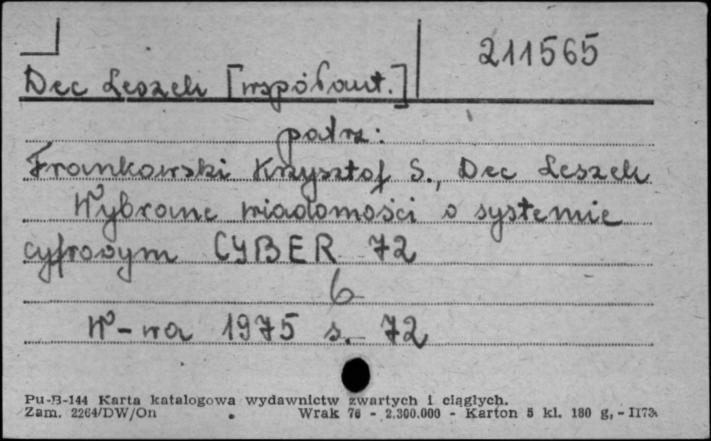 211565
Dec Leszek [współaut.]
patrz:
Frankowski Krzysztof S., Dec Leszek
Wybrane wiadomości o systemie
cyfrowym CYBER 72
6
W-wa 1975 s. 72
Pu-B-144 Karta katalogowa wydawnictw zwartych i ciągłych.
Zam. 2264/DW/On Wrak 76 - 2.300.000 - Karton 5 kl. 180 g, - II73